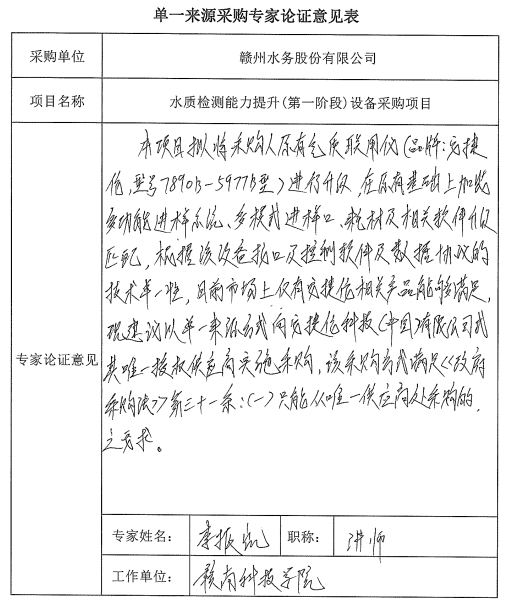 单一来源采购专家论证意见表
采购单位 赣州水务股份有限公司
项目名称 水质检测能力提升(第一阶段)设备采购项目
专家论证意见
本项目拟将采购人原有气质联用仪(品牌:安捷
伦,型号7890B-5977B型)进行升级,在原有基础上加装
多功能进样系统、多模式进样口、耗材及相关软件升级
匹配,根据该设备接口及控制软件及数据协议的
技术单一性,目前市场上仅有安捷伦相关产品能够满足,
现建议以单一来源方式向安捷伦科技(中国)有限公司或
其唯一授权供应商实施采购,该采购方式满足《政府
采购法》第三十一条:(一)只能从唯一供应商处采购的,
之要求。
专家姓名: 李振凯 职称: 讲师
工作单位: 赣南科技学院